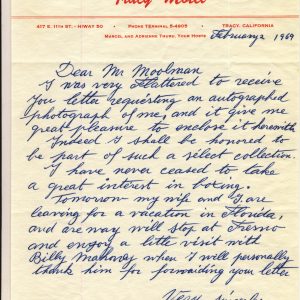 Tracy Motel
417 E. 11TH ST. - HIWAY 50 • PHONE TERMINAL 5-4905 • TRACY, CALIFORNIA
MARCEL AND ADRIENNE THURU, YOUR HOSTS
February 2 1969
Dear Mr Moolman
I was very flattered to receive
you letter requesting an autographed
photograph of me, and it give me
great pleasure to enclose it herewith
Indeed I shall be honored to
be part of such a select collection.
I have never ceased to take
a great interest in boxing.
Tomorrow my wife and I are
leaving for a vacation in Florida,
and are way will stop at Fresno
and enjoy a little visit with
Billy Mahoney when I will personally
thank him for forwaiding you letter
Very sincerely